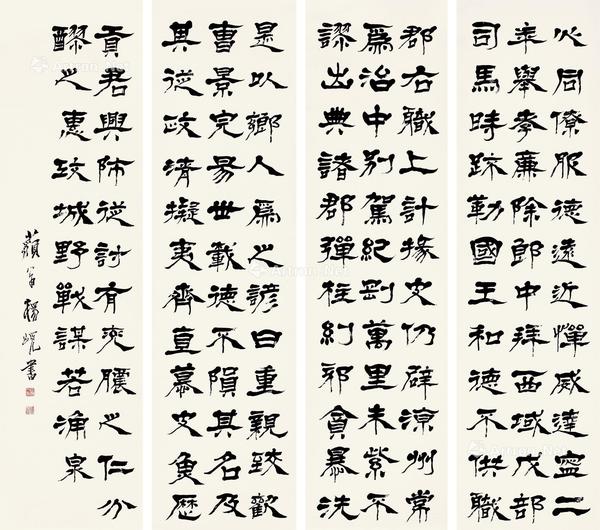 心同僚服德遠近憚威建寧二
年舉孝廉除郎中拜西域戊部
司馬時疏勒國王和德不供職
郡右職上計掾史仍辟涼州常
為治中別駕紀剛萬里朱紫不
謬出典諸郡彈枉糾邪貪暴洗
是以鄉人為之諺曰重親致歡
曹景完易世載德不隕其名及
其從政清擬夷齊直慕史魚歷
貢君興師征討有兗膿之仁分
醪之惠攻城野戰謀若涌泉
藐翁楊峴書